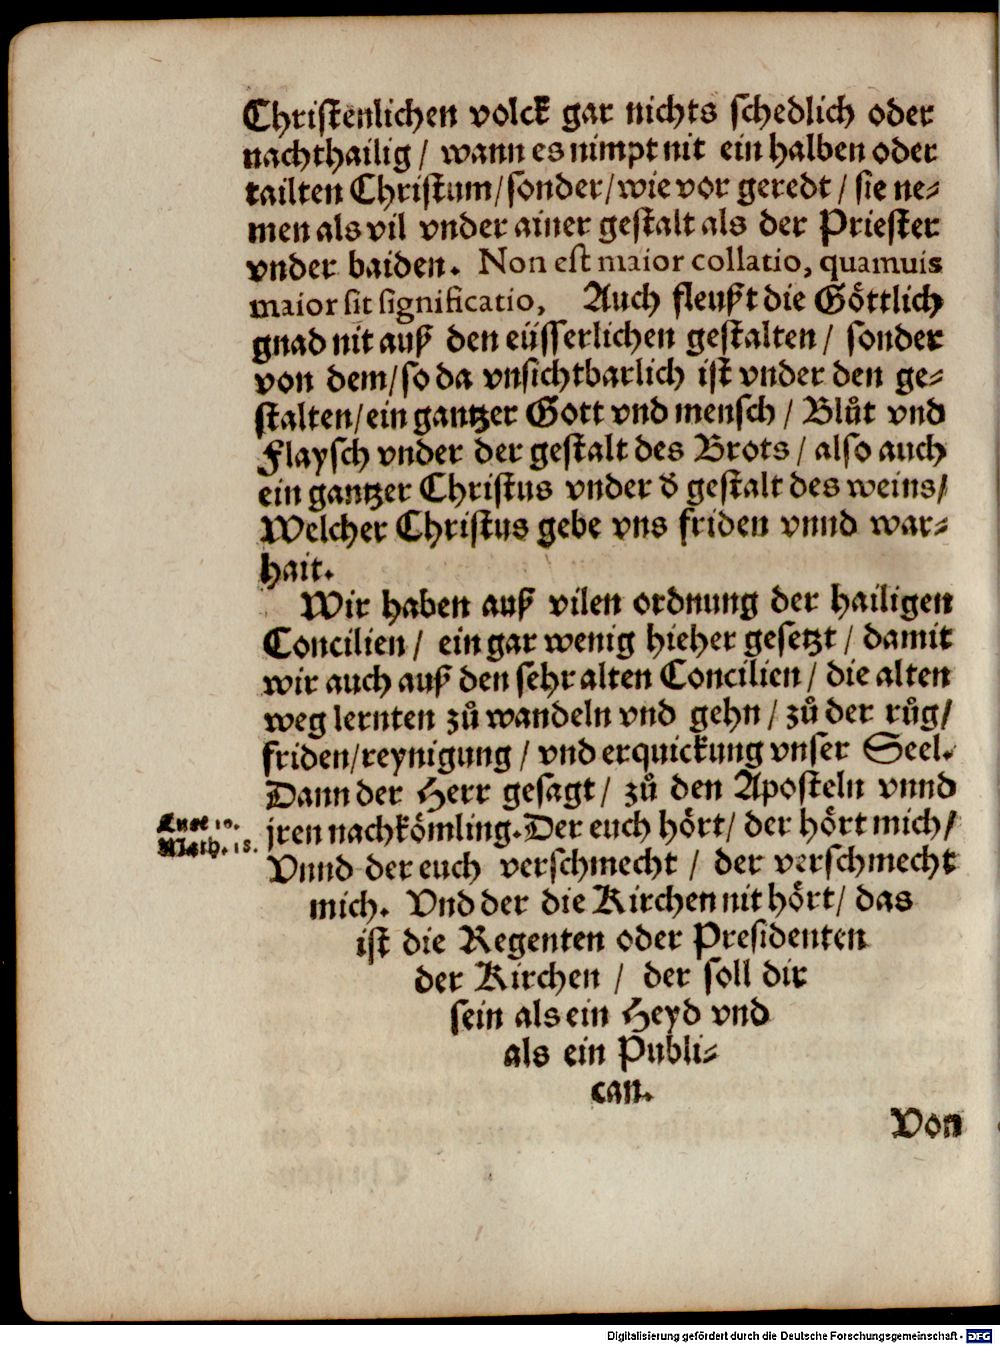 Christenlichen volck gar nichts schedlich oder
nachthailig / wann es nimpt nit ein halben oder
tailten Christum / sonder / wie vor geredt / sie ne⸗
men als vil vnder ainer gestalt als der Priester
vnder baiden. Non est maior collatio, quamuis
maior sit significatio, Auch fleußt die Göttlich
gnad nit auß den eüsserlichen gestalten / sonder
von dem / so da vnsichtbarlich ist vnder den ge⸗
stalten / ein gantzer Gott vnd mensch / Blůt vnd
Flaysch vnder der gestalt des Brots / also auch
ein gantzer Christus vnder đ gestalt des weins /
Welcher Christus gebe vns friden vnnd war⸗
hait.
Wir haben auß vilen ordnung der hailigen
Concilien / ein gar wenig hieher gesetzt / damit
wir auch auß den sehr alten Concilien / die alten
weg lernten zů wandeln vnd gehn / zů der růg /
friden / reynigung / vnd erquickung vnser Seel.
Dann der Herr gesagt / zů den Aposteln vnnd
Luce 10.
jren nachkömling. Der euch hört / der hört mich /
Math. 18.
Vnnd der euch verschmecht / der verschmecht
mich. Vnd der die Kirchen nit hört / das
ist die Regenten oder Presidenten
der Kirchen / der soll dir
sein als ein Heyd vnd
als ein Publi⸗
can.
Von
Digitalisierung gefördert durch die Deutsche Forschungsgemeinschaft - DFG